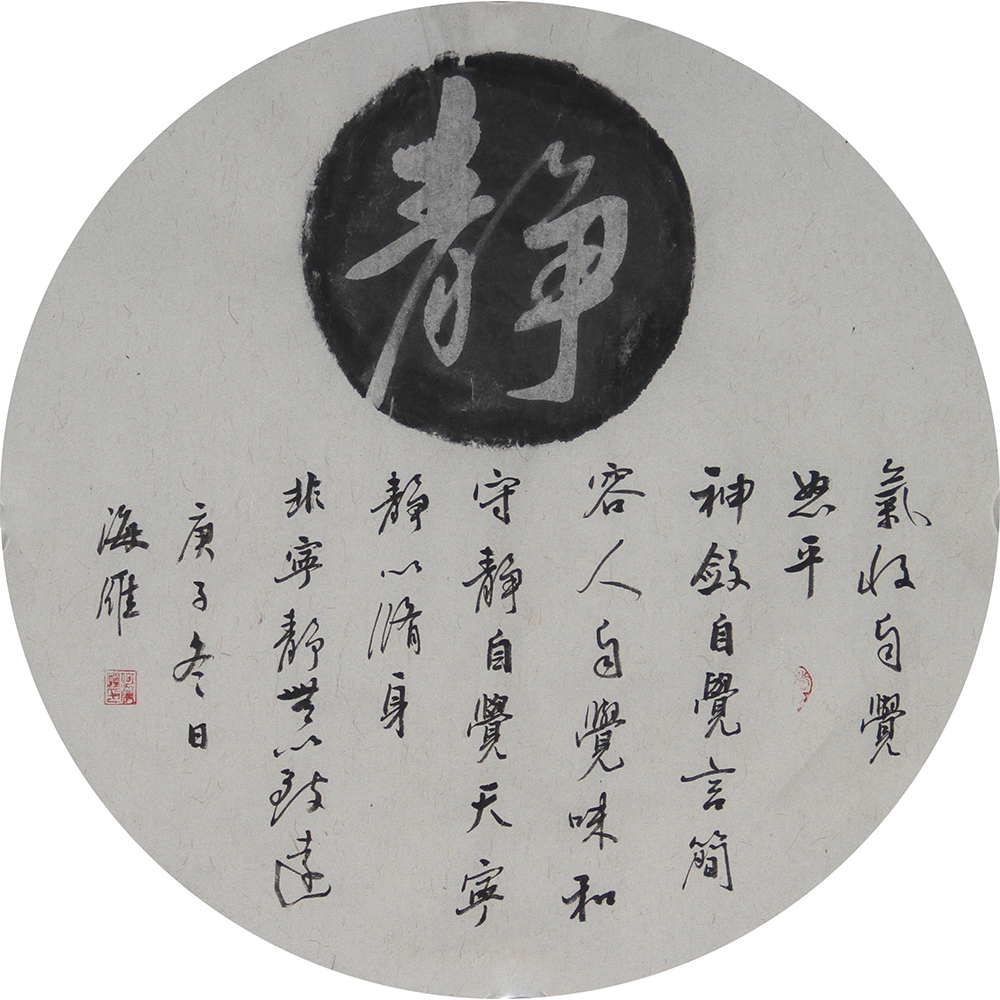 靜
氣收自覺
怒平
神斂自覺言簡
容人自覺味和
守靜自覺天寧
靜以脩身
非寧靜無以致遠
庚子冬日
海雁